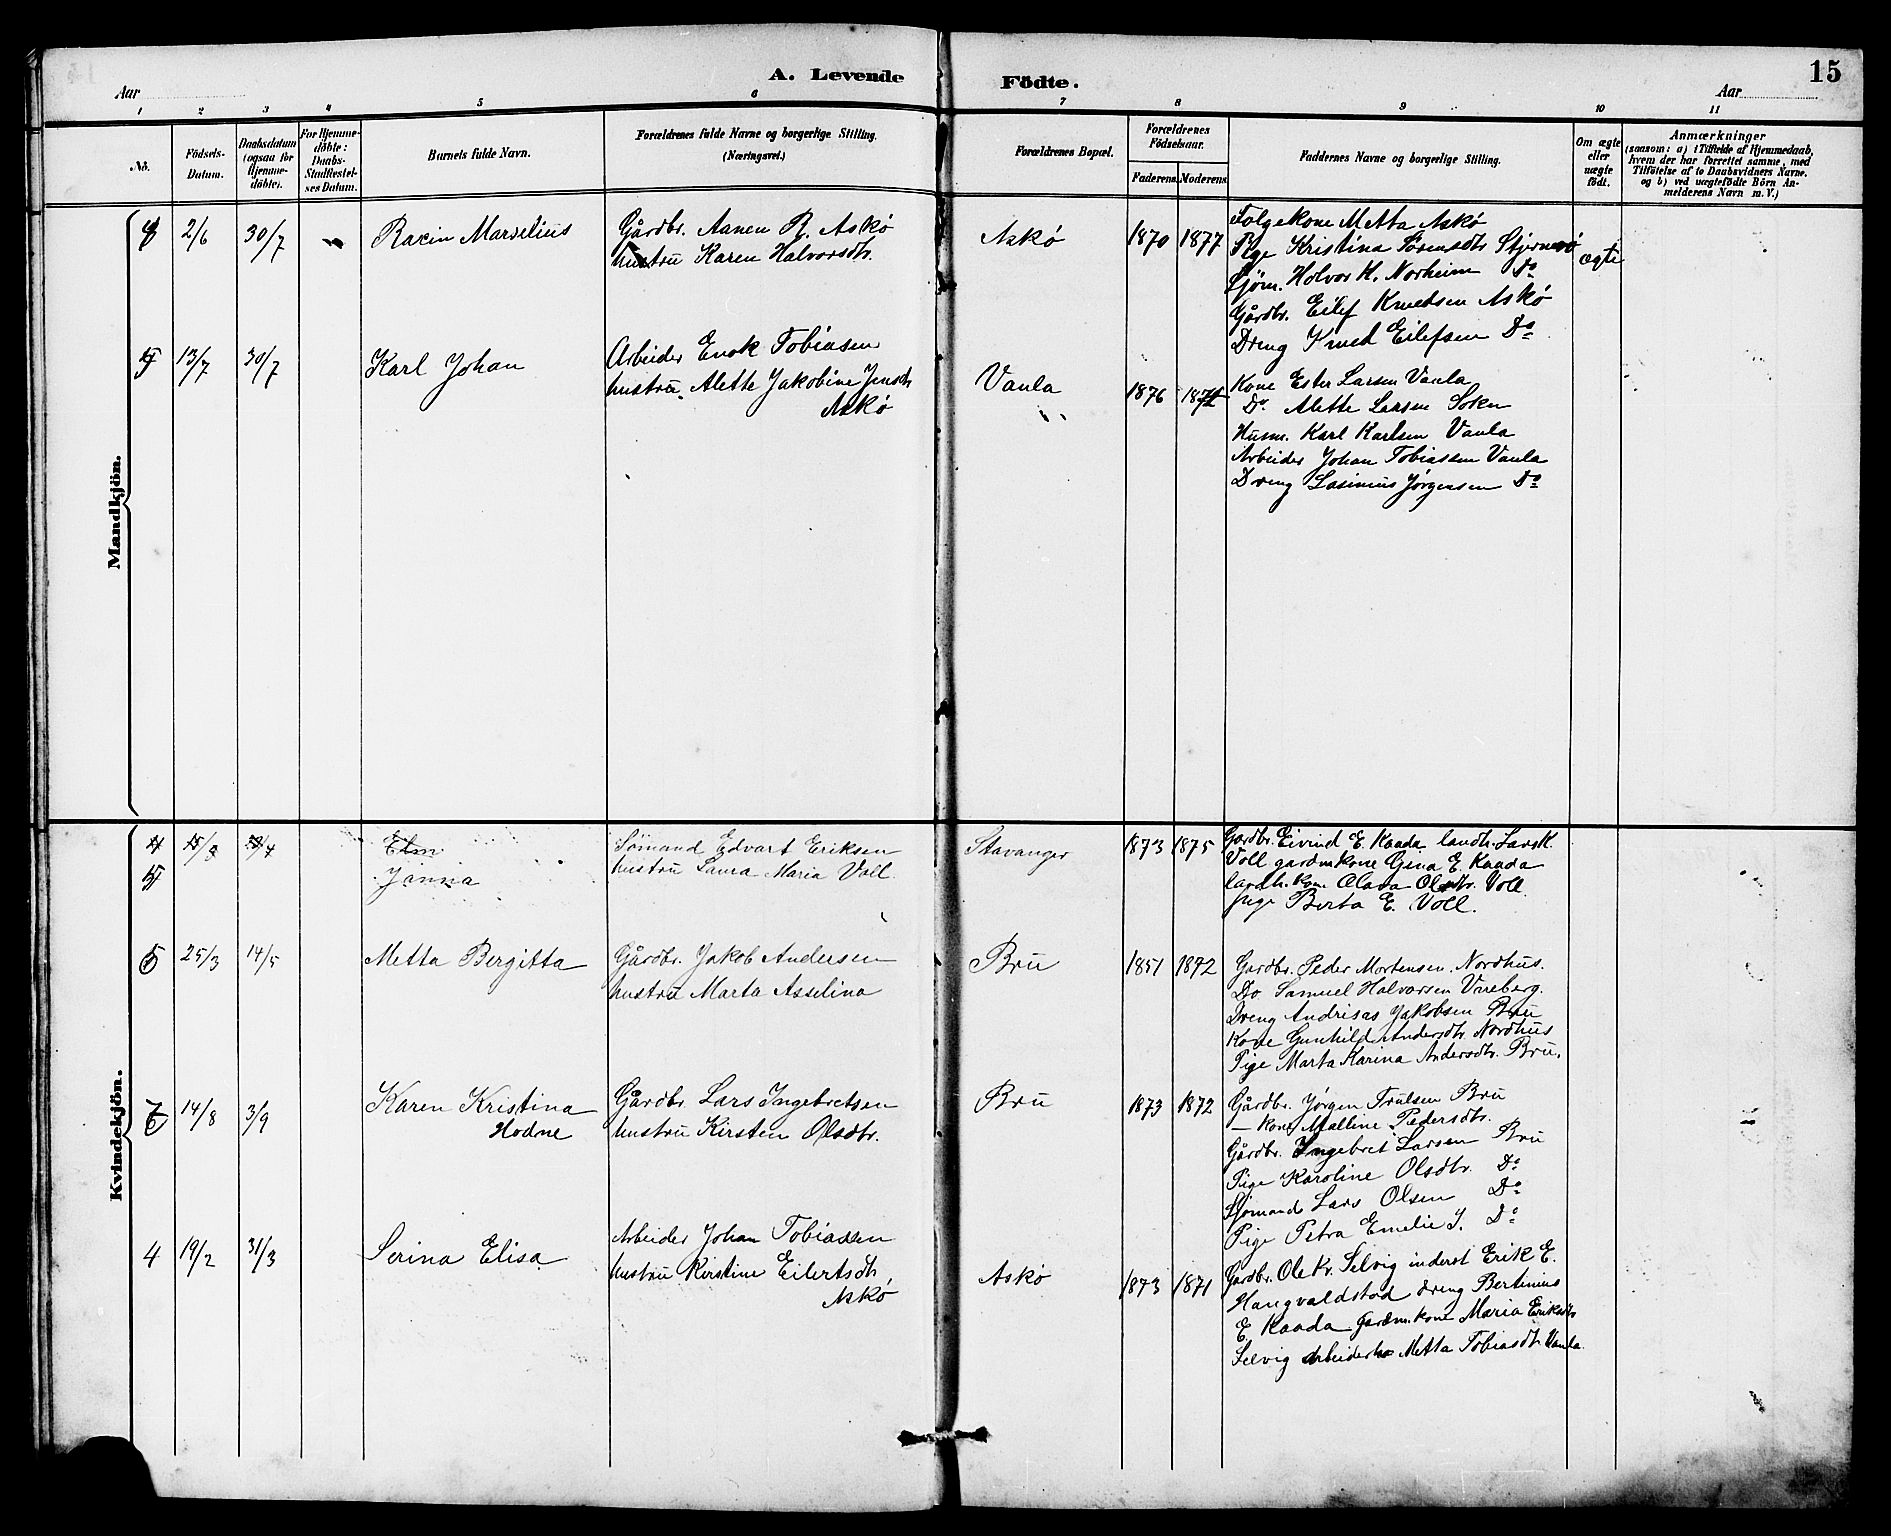 15
A. Levende Födte.
Aar
Aar
1 2 3 4 5 6 7 8 9 10 11
No.
Födsels-
Datum.
Daabsdatum
(ogsaa for
Hjemme-
döbte).
For Hjemme-
döbte:
Daabs-
Stadfestel-
ses Datum.
Barnets fulde Navn.
Forældrenes fulde Navne og borgerlige Stilling.
(Næringsvei.)
Forældrenes Bopæl.
Forældrenes
Födselsaar.
Faderens. Moderens.
Faddernes Navne og borgerlige Stilling.
Om ægte
eller
uægte
födt.
Anmærkninger
(saasom: a) i Tilfælde af Hjemmedaab,
hvem der har forrettet samme, med
Tilföielse af to Daabsvidners Navne.
og b) ved uægtefödte Börn An-
melderens Navn m. V.)
Mandkjön.
2/6 30/7 Racin Marselius
Gårdbr. Aanen R. Askø
hustru Karen Halvorsdtr.
Askø 1870 1877
Folgekone Metta Askø
Pige Kristina Sörensdtr Stjernerö
Sjøm. Holvor H. Norheim Do
Gårdbr. Eilef Knudsen Askø
Dreng Knud Eilefsen Do
ægte
5 13/7 30/7 Karl Johan
Arbeider Enok Tobiasen
hustru Alette Jakobine Jensdtr
Askø
Vaula 1876
Kone Ester Larsen Vaula
Do. Alette Larsen Soken
Husm. Karl Karlsen Vaula
Arbeider Johan Tobiassen Vaula
Dreng Lasinius Jørgensen Do
Kvindekjön.
4
5
Elen
Janna
Sömand Edvart Eriksen
hustru Laura Maria Voll
Stavanger 1873 1875
Gardbr. Eivind E. Kaada landh. Lars K.
Voll gardmkone Gina E. Kaada
landh. kon. Olava Olsdtr. Voll
pige Berta E. Voll.
25/3 14/5 Metta Bergitta
Gårdbr. Jakob Andersen
hustru Marta Asselina
Bru 1851 1872
Gardbr. Peder Mortensen. Nordhus.
Do Samuel Halvorsen Vareberg.
Dreng Andrias Jakobsen Bru
Kone Gunhild Andersdtr Nordhus
Pige Marta Karina Andersdtr. Bru.
14/8 3/9 Karen Kristina
Hodne
Gårdbr Lars Ingebretsen
hustru Kirsten Olsdtr.
Bru 1873 1872
Gårdbr. Jörgen Trulsen Bru
— kone Malline Pedersdtr.
Gårdbr. Ingebret Larsen Bru
Pige Karoline Olsdtr. Do
Sjömand Lars Olsen Do
Pige Petra Emelie J. Do
4 19/2 31/3 Serina Elisa
Arbeider Johan Tobiassen
hustru Kirstine Eilertsdtr,
Askø
Askø 1873 1871
Gardbr. Ole Kr. Selvig inderst Erik E.
Hangvaldstad dreng Bertinius
E. Kaada gardm. kone Maria Eriksdtr
Selvig arbeiderk. Metta Tobiasdtr. Vaula